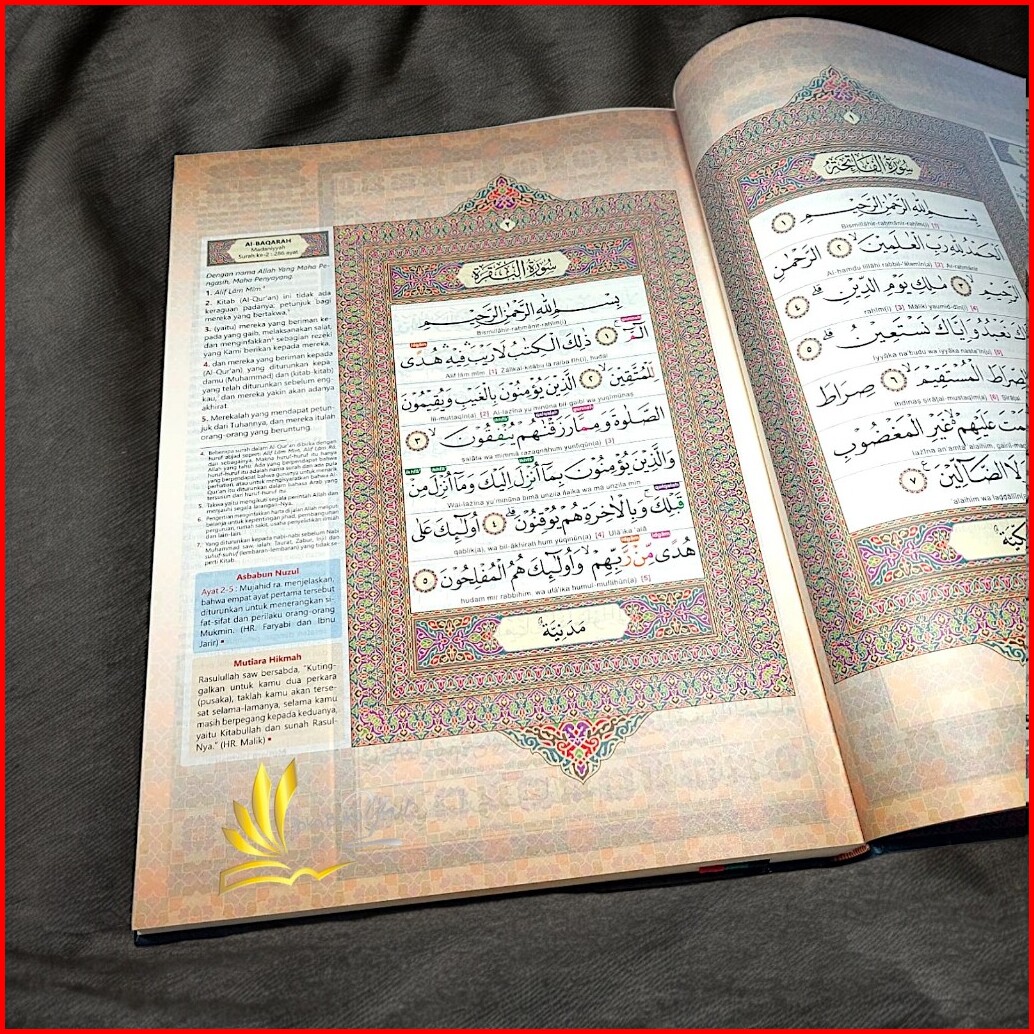 ١
سورة الفاتحة
بِسْمِ اللهِ الرَّحْمٰنِ الرَّحِيْمِ ١
Bismillāhir-raḥmānir-raḥīm(i) [1]
اَلْحَمْدُ لِلّٰهِ رَبِّ الْعٰلَمِيْنَۙ ٢ الرَّحْمٰنِ
Al-ḥamdu lillāhi rabbil-‘ālamīn(a) [2] Ar-raḥmānir
الرَّحِيْمِۙ ٣ مٰلِكِ يَوْمِ الدِّيْنِۗ ٤
raḥīm(i) [3] Māliki yaumid-dīn(i) [4]
نَعْبُدُ وَاِيَّاكَ نَسْتَعِيْنُۗ ٥
Iyyāka na‘budu wa iyyāka nasta‘īn(u) [5]
الصِّرَاطَ الْمُسْتَقِيْمَۙ ٦ صِرَاطَ
Ihdinaṣ ṣirāṭal-mustaqīm(a) [6] Ṣirāṭal
عَلَيْهِمْ ەۙ غَيْرِ الْمَغْضُوْبِ
lazīna an‘amta ‘alaihim, gairil-
وَلَا الضَّاۤلِّيْنَ ٧
‘alaihim wa laḍḍāllīn(a)
٢
سورة البقرة
بِسْمِ اللهِ الرَّحْمٰنِ الرَّحِيْمِ
Bismillāhir-raḥmānir-raḥīm(i)
الۤمّۤ ۚ ١ ذٰلِكَ الْكِتٰبُ لَا رَيْبَ ۛ فِيْهِ ۛ هُدًى
Alif lām mīm [1] Zālikal-kitābu lā raiba fīh(i), hudal
لِّلْمُتَّقِيْنَۙ ٢ الَّذِيْنَ يُؤْمِنُوْنَ بِالْغَيْبِ وَيُقِيْمُوْنَ
lil-muttaqīn(a) [2] Al-lazīna yu'minūna bil-gaibi wa yuqīmūnaṣ
الصَّلٰوةَ وَمِمَّا رَزَقْنٰهُمْ يُنْفِقُوْنَۙ ٣
ṣalāta wa mimmā razaqnāhum yunfiqūn(a) [3]
وَالَّذِيْنَ يُؤْمِنُوْنَ بِمَآ اُنْزِلَ اِلَيْكَ وَمَآ اُنْزِلَ مِنْ
Wal-lazīna yu'minūna bimā unzila ilaika wa mā unzila min
قَبْلِكَۚ وَبِالْاٰخِرَةِ هُمْ يُوْقِنُوْنَۗ ٤ اُولٰۤىِٕكَ عَلٰى
qablik(a), wa bil-ākhirati hum yūqinūn(a) [4] Ulā'ika ‘alā
هُدًى مِّنْ رَّبِّهِمْ ۙ وَاُولٰۤىِٕكَ هُمُ الْمُفْلِحُوْنَ ٥
hudam mir rabbihim, wa ulā'ika humul-mufliḥūn(a) [5]
مَدَنِيَّة
Al-BAQARAH
Madaniyyah
Surah ke-2 : 286 ayat
Dengan nama Allah Yang Maha Pe-
ngasih, Maha Penyayang.
1. Alif Lām Mīm.⁴
2. Kitab (Al-Qur'an) ini tidak ada
keraguan padanya; petunjuk bagi
mereka yang bertakwa,⁵
3. (yaitu) mereka yang beriman ke-
pada yang gaib, melaksanakan salat,
dan menginfakkan⁶ sebagian rezeki
yang Kami berikan kepada mereka,
4. dan mereka yang beriman kepada
(Al-Qur'an) yang diturunkan kepa-
damu (Muhammad) dan (kitab-kitab)
yang telah diturunkan sebelum eng-
kau,⁷ dan mereka yakin akan adanya
akhirat.
5. Merekalah yang mendapat petun-
juk dari Tuhannya, dan mereka itulah
orang-orang yang beruntung.
Asbabun Nuzul
Ayat 2-5 : Mujahid ra. menjelaskan,
bahwa empat ayat pertama tersebut
diturunkan untuk menerangkan si-
fat-sifat dan perilaku orang-orang
Mukmin. (HR. Faryabi dan Ibnu
Jarir)
Mutiara Hikmah
Rasulullah saw bersabda, "Kuting-
galkan untuk kamu dua perkara
(pusaka), taklah kamu akan terse-
sat selama-lamanya, selama kamu
masih berpegang kepada keduanya,
yaitu Kitabullah dan sunah Rasul-
Nya." (HR. Malik)